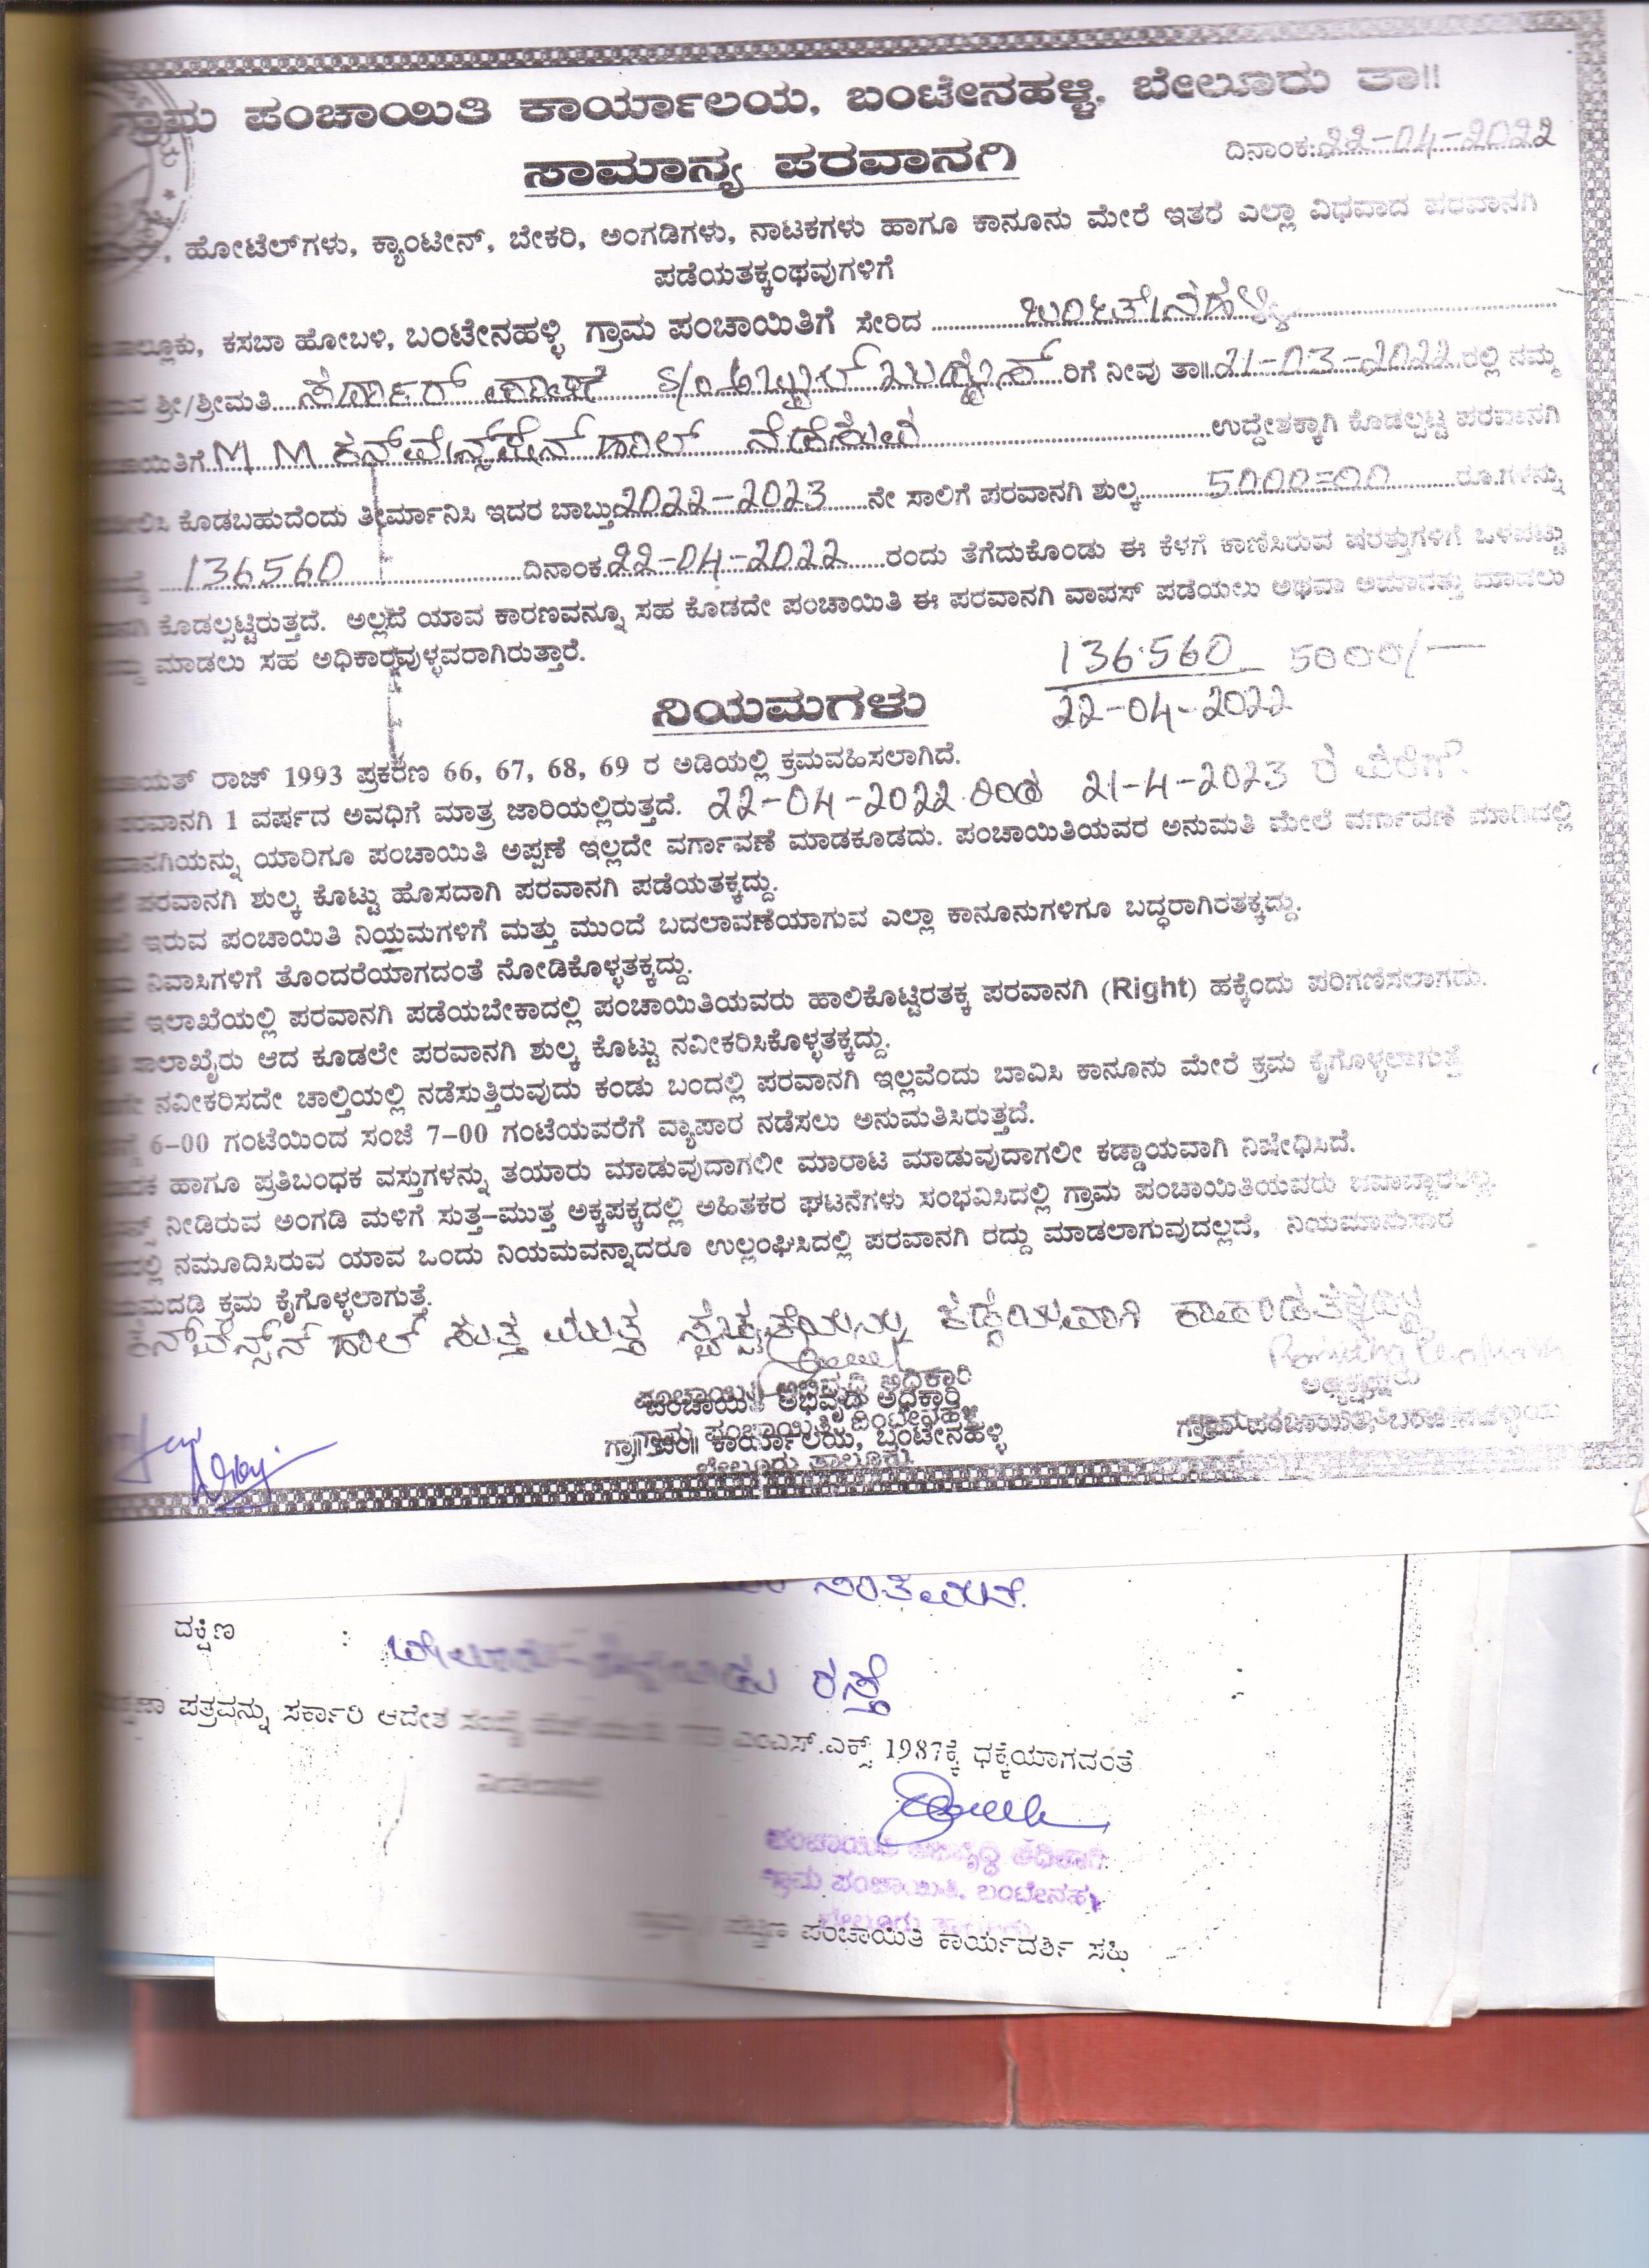 ಗ್ರಾಮ ಪಂಚಾಯಿತಿ ಕಾರ್ಯಾಲಯ, ಬಂಟೇನಹಳ್ಳಿ, ಬೇಲೂರು ತಾ||
ದಿನಾಂಕ: 22-04-2022
ಸಾಮಾನ್ಯ ಪರವಾನಗಿ
, ಹೋಟೆಲ್‌ಗಳು, ಕ್ಯಾಂಟೀನ್, ಬೇಕರಿ, ಅಂಗಡಿಗಳು, ನಾಟಕಗಳು ಹಾಗೂ ಕಾನೂನು ಮೇರೆ ಇತರೆ ಎಲ್ಲಾ ವಿಧವಾದ ಪರವಾನಗಿ
ಪಡೆಯತಕ್ಕಂಥವುಗಳಿಗೆ
ಕಸಬಾ ಹೋಬಳಿ, ಬಂಟೇನಹಳ್ಳಿ ಗ್ರಾಮ ಪಂಚಾಯಿತಿಗೆ ಸೇರಿದ ಬಂಟೇನಹಳ್ಳಿ
ಶ್ರೀ/ಶ್ರೀಮತಿ S/o ರಿಗೆ ನೀವು ತಾ||21-03-2022 ರಲ್ಲಿ ನಮ್ಮ
M M ಕನ್‌ವೇನ್ಷನ್ ಹಾಲ್ ನೆಡೆಸಲು ಉದ್ದೇಶಕ್ಕಾಗಿ ಕೊಡಲ್ಪಟ್ಟ ಪರವಾನಗಿ
ಕೊಡಬಹುದೆಂದು ತೀರ್ಮಾನಿಸಿ ಇದರ ಬಾಬ್ತು 2022-2023 ನೇ ಸಾಲಿಗೆ ಪರವಾನಗಿ ಶುಲ್ಕ 5000=00 ರೂ.ಗಳನ್ನು
136560 ದಿನಾಂಕ 22-04-2022 ರಂದು ತೆಗೆದುಕೊಂಡು ಈ ಕೆಳಗೆ ಕಾಣಿಸಿರುವ ಷರತ್ತುಗಳಿಗೆ ಒಳಪಟ್ಟು
ಕೊಡಲ್ಪಟ್ಟಿರುತ್ತದೆ. ಅಲ್ಲದೆ ಯಾವ ಕಾರಣವನ್ನೂ ಸಹ ಕೊಡದೇ ಪಂಚಾಯಿತಿ ಈ ಪರವಾನಗಿ ವಾಪಸ್ ಪಡೆಯಲು ಅಥವಾ ಅಮಾನತ್ತು ಮಾಡಲು
ಮಾಡಲು ಸಹ ಅಧಿಕಾರವುಳ್ಳವರಾಗಿರುತ್ತಾರೆ.
136560 5000/-
22-04-2022
ನಿಯಮಗಳು
ರಾಜ್ 1993 ಪ್ರಕರಣ 66, 67, 68, 69 ರ ಅಡಿಯಲ್ಲಿ ಕ್ರಮವಹಿಸಲಾಗಿದೆ.
ಪರವಾನಗಿ 1 ವರ್ಷದ ಅವಧಿಗೆ ಮಾತ್ರ ಜಾರಿಯಲ್ಲಿರುತ್ತದೆ. 22-04-2022 ರಿಂದ 21-4-2023 ರ ವರೆಗೆ.
ಯಾರಿಗೂ ಪಂಚಾಯಿತಿ ಅಪ್ಪಣೆ ಇಲ್ಲದೇ ವರ್ಗಾವಣೆ ಮಾಡಕೂಡದು. ಪಂಚಾಯಿತಿಯವರ ಅನುಮತಿ ಮೇಲೆ ವರ್ಗಾವಣೆ ಮಾಡಿದಲ್ಲಿ
ಪರವಾನಗಿ ಶುಲ್ಕ ಕೊಟ್ಟು ಹೊಸದಾಗಿ ಪರವಾನಗಿ ಪಡೆಯತಕ್ಕದ್ದು.
ಇರುವ ಪಂಚಾಯಿತಿ ನಿಯಮಗಳಿಗೆ ಮತ್ತು ಮುಂದೆ ಬದಲಾವಣೆಯಾಗುವ ಎಲ್ಲಾ ಕಾನೂನುಗಳಿಗೂ ಬದ್ಧರಾಗಿರತಕ್ಕದ್ದು.
ನಿವಾಸಿಗಳಿಗೆ ತೊಂದರೆಯಾಗದಂತೆ ನೋಡಿಕೊಳ್ಳತಕ್ಕದ್ದು.
ಇಲಾಖೆಯಲ್ಲಿ ಪರವಾನಗಿ ಪಡೆಯಬೇಕಾದಲ್ಲಿ ಪಂಚಾಯಿತಿಯವರು ಹಾಲಿಕೊಟ್ಟಿರತಕ್ಕ ಪರವಾನಗಿ (Right) ಹಕ್ಕೆಂದು ಪರಿಗಣಿಸಲಾಗದು.
ಸಾಲಾಖೈರು ಆದ ಕೂಡಲೇ ಪರವಾನಗಿ ಶುಲ್ಕ ಕೊಟ್ಟು ನವೀಕರಿಸಿಕೊಳ್ಳತಕ್ಕದ್ದು.
ನವೀಕರಿಸದೇ ಚಾಲ್ತಿಯಲ್ಲಿ ನಡೆಸುತ್ತಿರುವುದು ಕಂಡು ಬಂದಲ್ಲಿ ಪರವಾನಗಿ ಇಲ್ಲವೆಂದು ಬಾವಿಸಿ ಕಾನೂನು ಮೇರೆ ಕ್ರಮ ಕೈಗೊಳ್ಳಲಾಗುತ್ತೆ
6-00 ಗಂಟೆಯಿಂದ ಸಂಜೆ 7-00 ಗಂಟೆಯವರೆಗೆ ವ್ಯಾಪಾರ ನಡೆಸಲು ಅನುಮತಿಸಿರುತ್ತದೆ.
ಹಾಗೂ ಪ್ರತಿಬಂಧಕ ವಸ್ತುಗಳನ್ನು ತಯಾರು ಮಾಡುವುದಾಗಲೀ ಮಾರಾಟ ಮಾಡುವುದಾಗಲೀ ಕಡ್ಡಾಯವಾಗಿ ನಿಷೇಧಿಸಿದೆ.
ನೀಡಿರುವ ಅಂಗಡಿ ಮಳಿಗೆ ಸುತ್ತ-ಮುತ್ತ ಅಕ್ಕಪಕ್ಕದಲ್ಲಿ ಅಹಿತಕರ ಘಟನೆಗಳು ಸಂಭವಿಸಿದಲ್ಲಿ ಗ್ರಾಮ ಪಂಚಾಯಿತಿಯವರು ಜವಾಬ್ದಾರರಲ್ಲ.
ನಮೂದಿಸಿರುವ ಯಾವ ಒಂದು ನಿಯಮವನ್ನಾದರೂ ಉಲ್ಲಂಘಿಸಿದಲ್ಲಿ ಪರವಾನಗಿ ರದ್ದು ಮಾಡಲಾಗುವುದಲ್ಲದೆ, ನಿಯಮಾನುಸಾರ
ಕ್ರಮ ಕೈಗೊಳ್ಳಲಾಗುತ್ತೆ.
ಕನ್‌ವೆನ್ಸನ್ ಹಾಲ್ ಸುತ್ತ ಮುತ್ತ ಸ್ವಚ್ಛತೆಯನ್ನು ಕಡ್ಡಯವಾಗಿ ಕಾಪಾಡತಕ್ಕದ್ದು
ಪಂಚಾಯಿತಿ ಅಭಿವೃದ್ಧಿ ಅಧಿಕಾರಿ
ಗ್ರಾ|| ಪಂ|| ಕಾರ್ಯಾಲಯ, ಬಂಟೇನಹಳ್ಳಿ
ಬೇಲೂರು ತಾಲ್ಲೂಕು.
ಅಧ್ಯಕ್ಷರು
ದಕ್ಷಿಣ : ರಸ್ತೆ
ಪತ್ರವನ್ನು ಸರ್ಕಾರಿ ಆದೇಶ ಎಂಎಸ್.ಎಕ್ಸ್ 1987ಕ್ಕೆ ಧಕ್ಕೆಯಾಗದಂತೆ
ಪಂಚಾಯಿತಿ ಅಭಿವೃದ್ಧಿ ಅಧಿಕಾರಿ
ಗ್ರಾಮ ಪಂಚಾಯಿತಿ, ಬಂಟೇನಹಳ್ಳಿ
ಬೇಲೂರು ತಾಲ್ಲೂಕು
ಪಂಚಾಯಿತಿ ಕಾರ್ಯದರ್ಶಿ ಸಹಿ